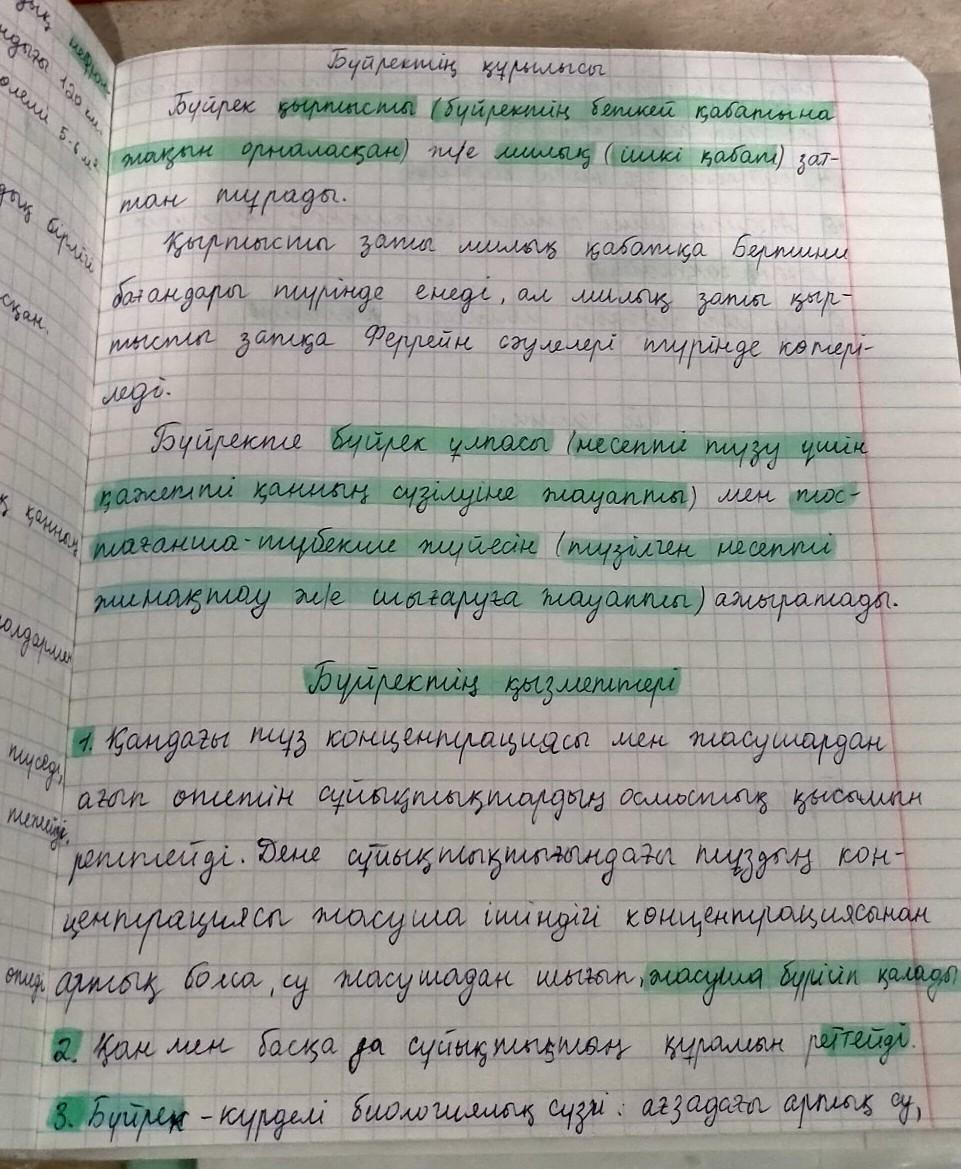 дық нефрон
ндағы 120 см.
өлемі 5-6 м²
дық бірлігі
сқан.
қ қаннан
олдармен
түседі,
тетейді.
өтеді
Бүйректің құрылысы
Бүйрек қыртысты (бүйректің беткей қабатына
жақын орналасқан) ж/е милық (ішкі қабат) зат-
тан тұрады.
Қыртысты заты милық қабатқа Бертини
бағандары түрінде енеді, ал милық заты қыр-
тысты затқа Феррейн сәулелері түрінде көтері-
леді.
Бүйректе бүйрек ұлпасы (несепті түзу үшін
қажетті қанның сүзілуіне жауапты) мен тос-
тағанша-түбекше жүйесін (түзілген несепті
жинақтау ж/е шығаруға жауапты) ажыратады.
Бүйректің қызметтері
1. Қандағы тұз концентрациясы мен жасушардан
ағып өтетін сұйықтықтардың осмостық қысымын
реттейді. Дене сұйықтықтығындағы тұздың кон-
центрациясы жасуша ішіндігі концентрациясынан
артық болса, су жасушадан шығып, жасуша бүрісіп қалады
2. Қан мен басқа да сұйықтықтың құрамын реттейді.
3. Бүйрек - күрделі биологиялық сүзгі: ағзадағы артық су,